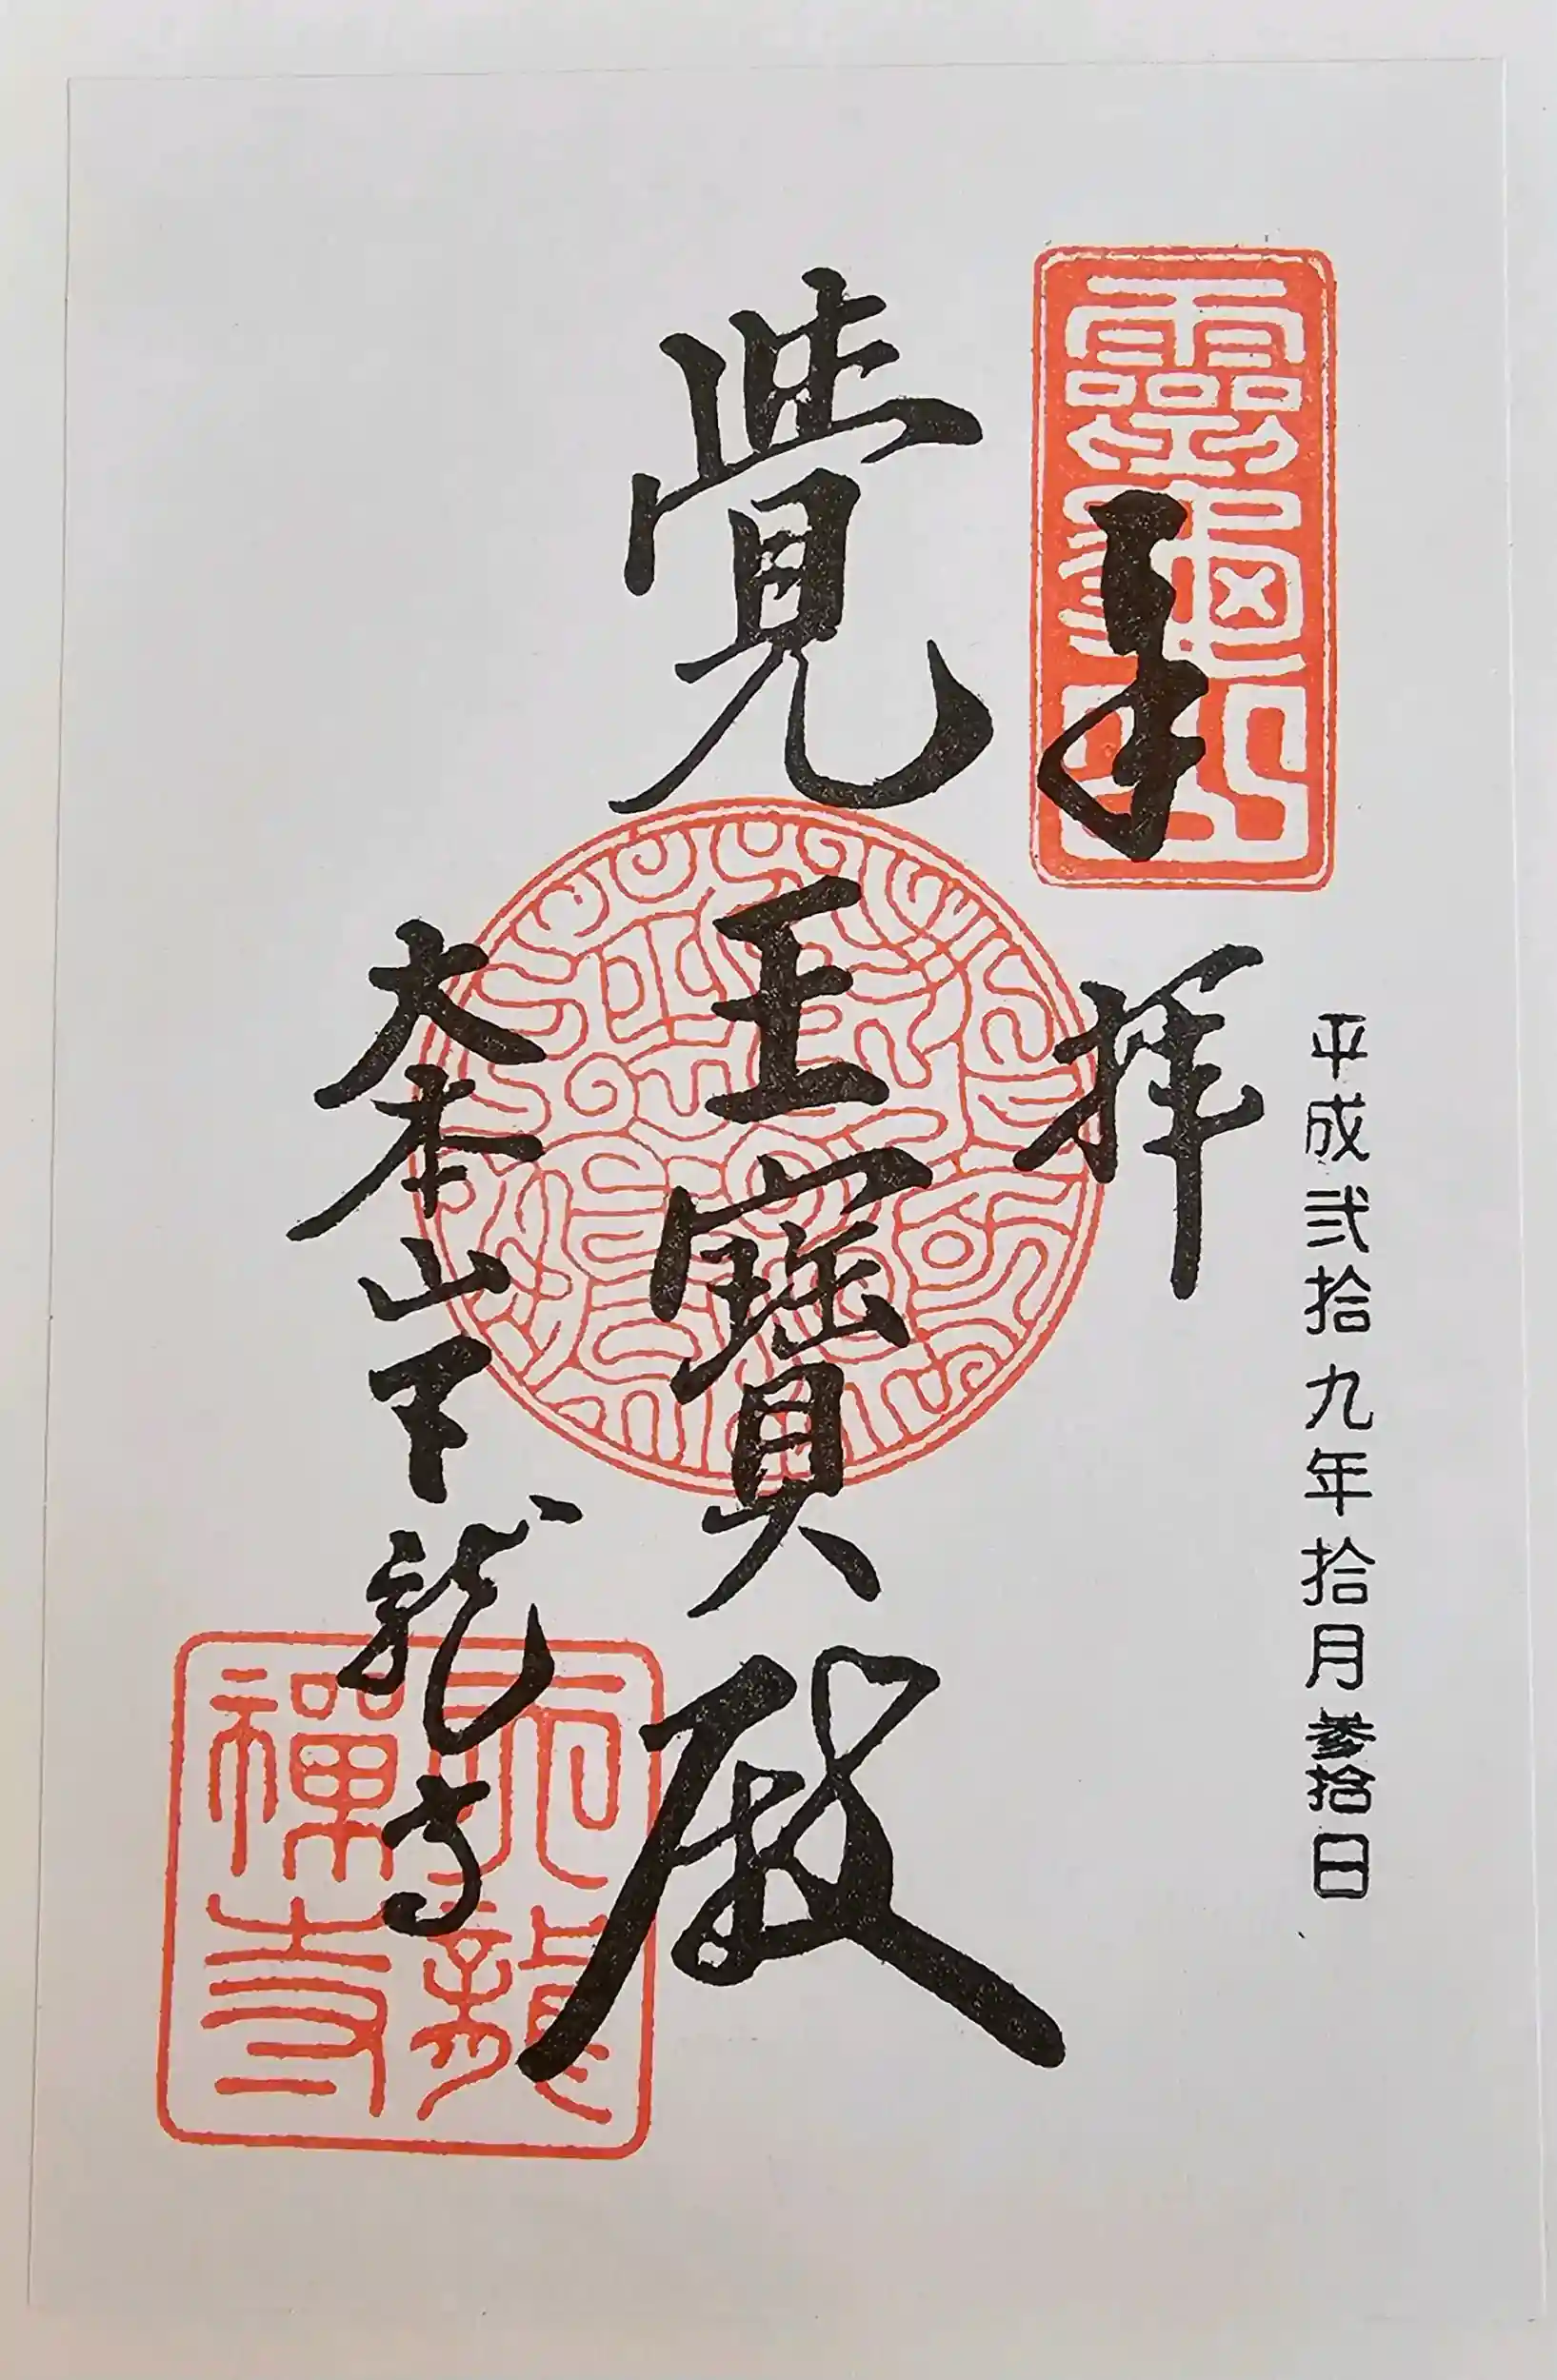 平成弐拾九年拾月参拾日
奉拝
靈龜山
覺王寶殿
大本山天龍寺
天龍禪寺